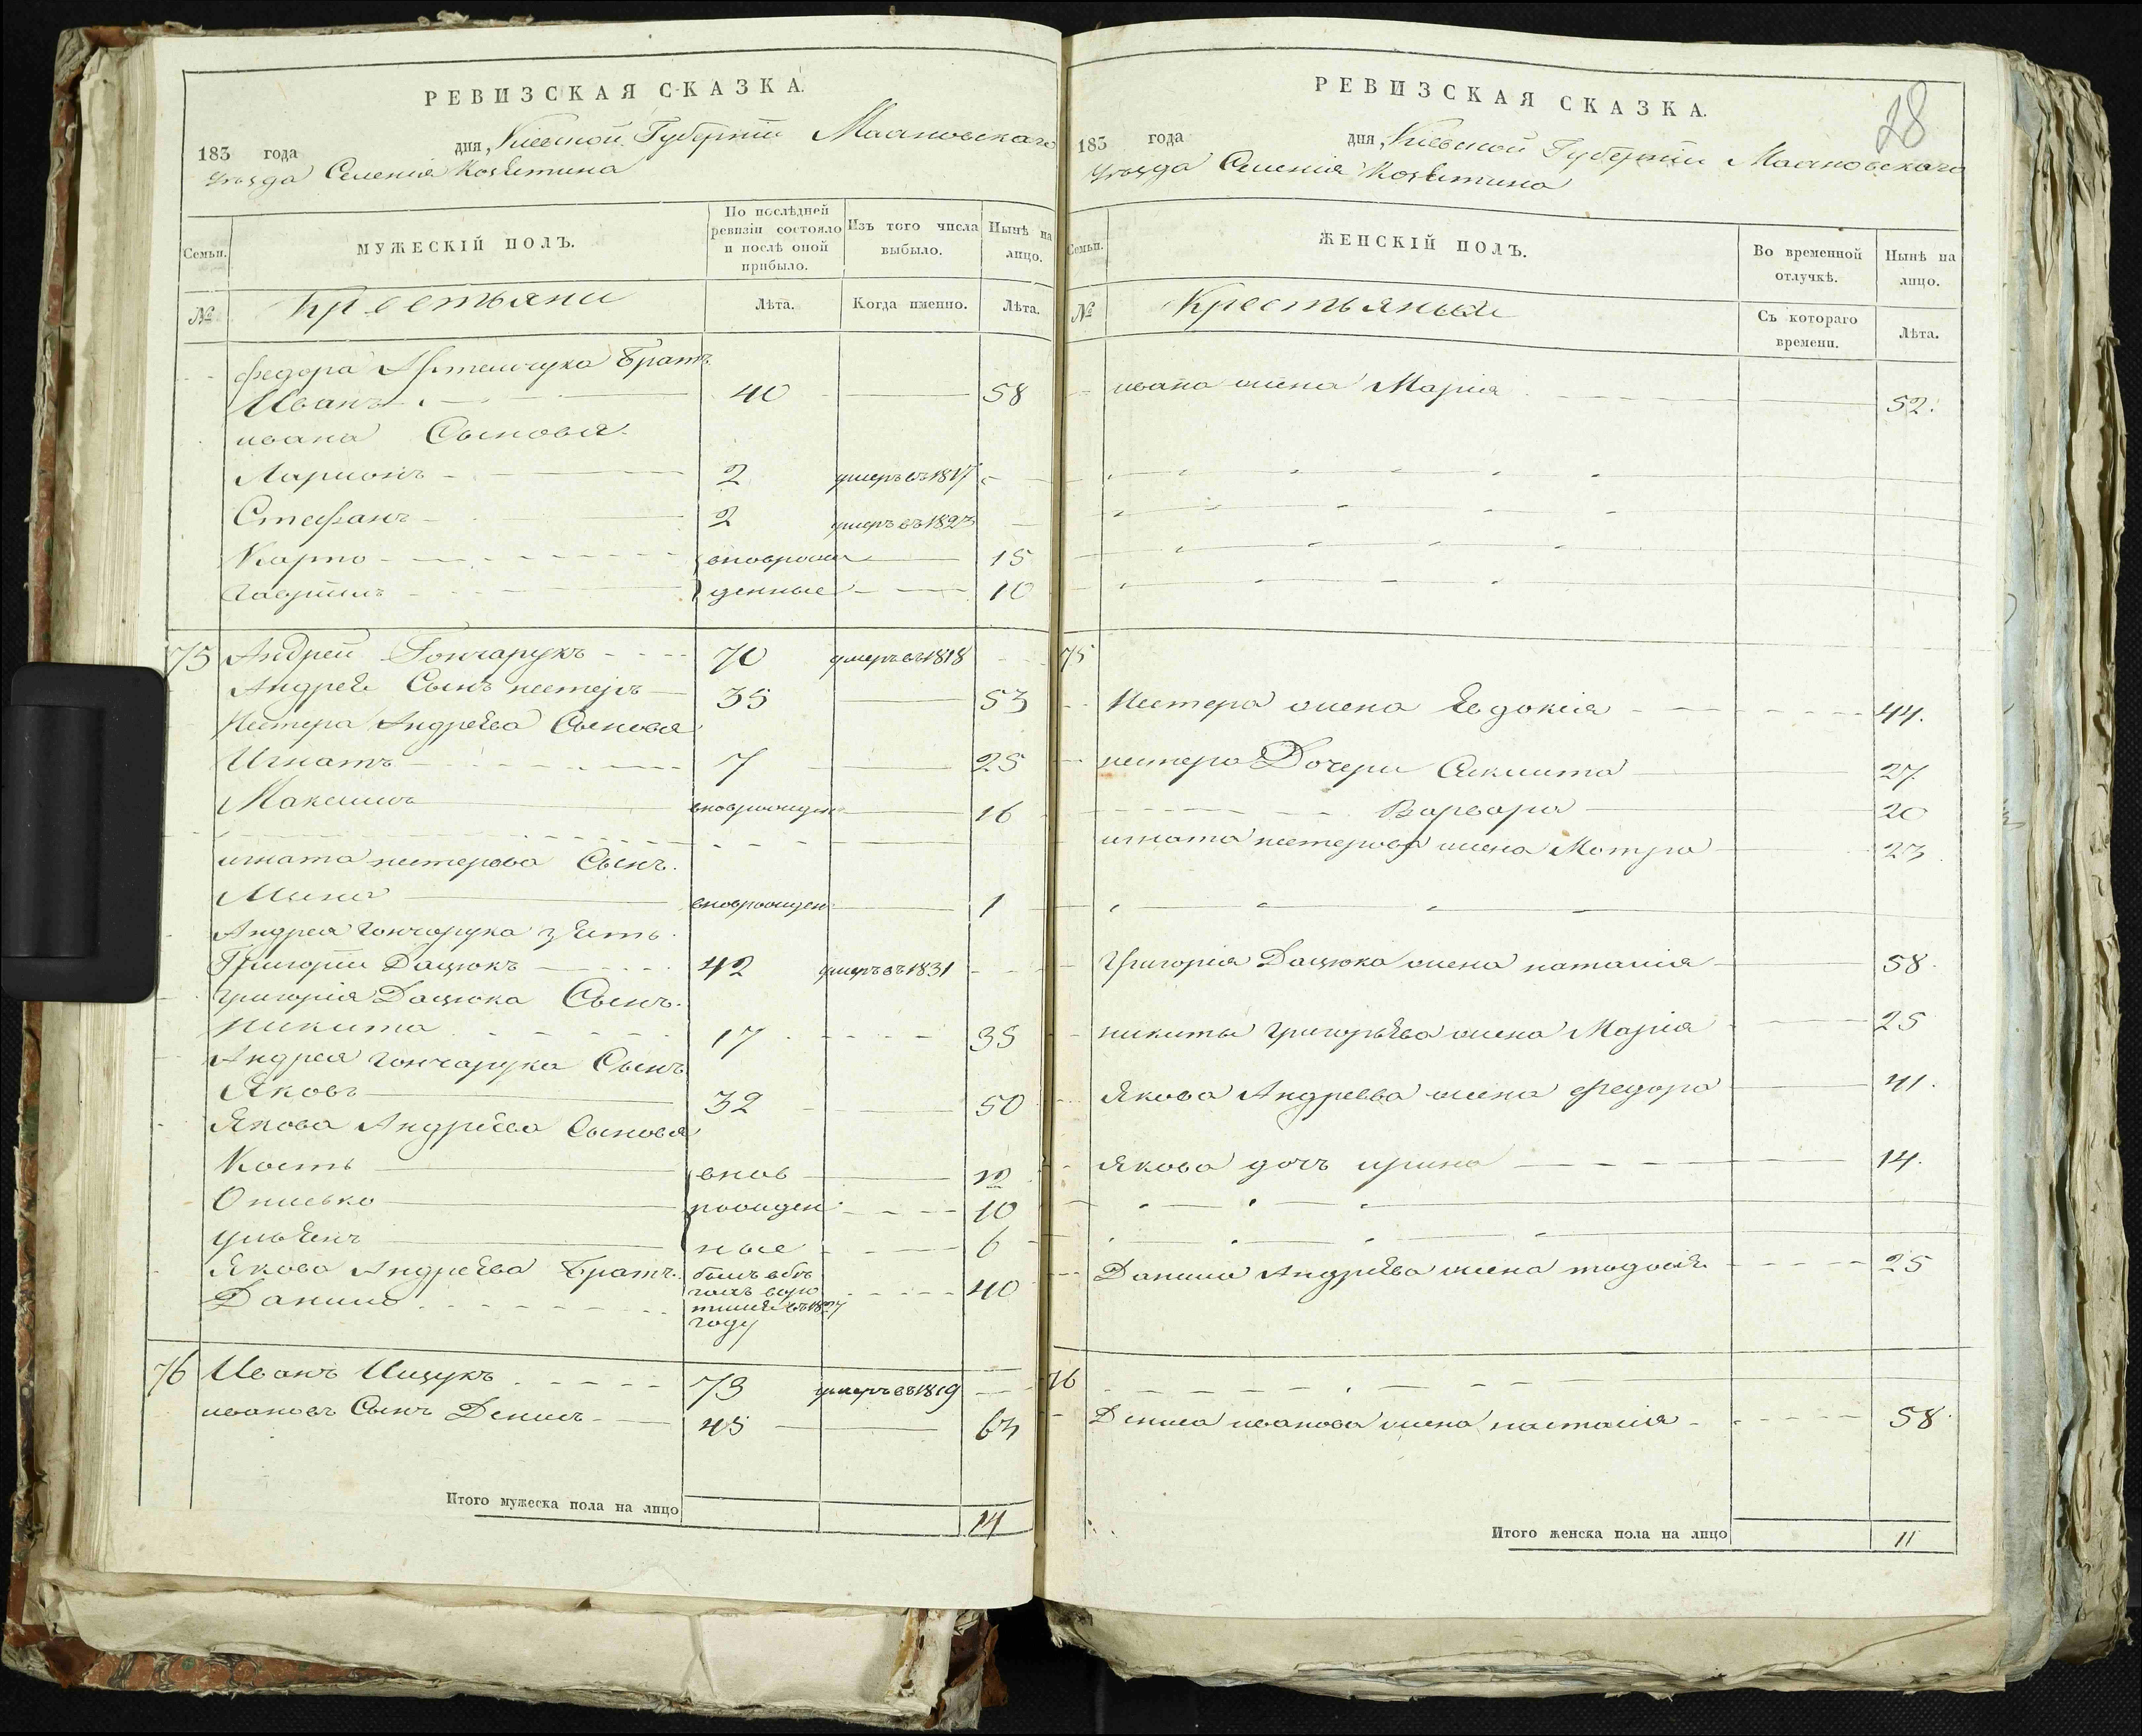 РЕВИЗСКАЯ СКАЗКА.
183 года дня, Кіевской Губерніи Махновскаго
уѣзда Селенія Козѣтина
Семьи.
МУЖЕСКІЙ ПОЛЪ.
По послѣдней ревизіи состояло и послѣ оной прибыло.
Изъ того числа выбыло.
Нынѣ на лицо.
№
Крестьяни
Лѣта.
Когда именно.
Лѣта.
федора Артемчука Братъ
Иванъ 40 58
ивана Сыновья
Ларионъ 2 умеръ въ 1817
Стефанъ 2 умеръ въ 1823
Карпо вноврож 15
Гаврiилъ денные 10
75 Андрей Гончарукъ 70 умеръ въ 1818
Андрея Сынъ нестеръ 35 53
Нестера Андрѣева Сыновья
Игнатъ 7 25
Максимъ вноврожден 16
игната нестерова Сынъ.
Мина вноврожден 1
Андрея гончарука зять
Григорiй Дацюкъ 42 умеръ въ 1831
григорія Дацюка Сынъ.
Никита 17 35
Андрея гончарука Сынъ
Яковъ 32 50
Якова Андрѣева Сыновья
Кость внов 12
Онисько рожден 10
ульянъ ные 6
Якова Андрѣева Братъ. былъ в бѣ
Данило гахъ воро 40
тился въ 1827
году
76 Иванъ Ищукъ 73 умеръ въ 1819
ивановъ Сынъ Денисъ 45 63
Итого мужеска пола на лицо 14
28
РЕВИЗСКАЯ СКАЗКА.
183 года дня, Кіевской Губерніи Махновскаго
уѣзда Селенія Козѣтина
Семьи.
ЖЕНСКІЙ ПОЛЪ.
Во временной отлучкѣ.
Нынѣ на лицо.
№
Крестьяныя
Съ котораго времени.
Лѣта.
ивана жена Марія 52.
75
Нестера жена Евдокія 44.
нестера Дочери 27
Варвара 20
игната нестерова жена Мотра 23
Григорія Дацюка жена наталія 58
никиты григорьева жена Марія 25
Якова Андреева жена федора 41.
якова дочъ ирина 14.
Данила Андрѣева жена тодосія 25
76
Дениса иванова жена настасія 58
Итого женска пола на лицо 11